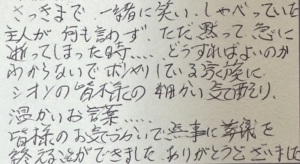 さっきまで一緒に笑い、しゃべっていた
主人が何も言わず、ただ黙って急に
逝ってしまった時.....どうすればよいのか
わからないでボンヤリしている家族に
シオンの皆様の細かい気配り、
温かいお言葉.....
皆様のお気づかいで無事に葬儀を
終えることができました ありがとうございました